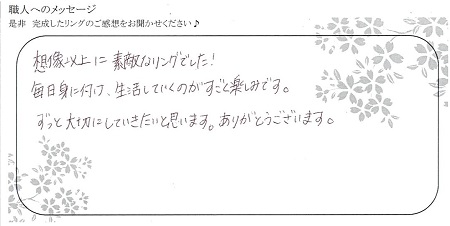 職人へのメッセージ
是非 完成したリングのご感想をお聞かせください♪
想像以上に素敵なリングでした!
毎日身に付け、生活していくのがすごく楽しみです。
ずっと大切にしていきたいと思います。ありがとうございます。